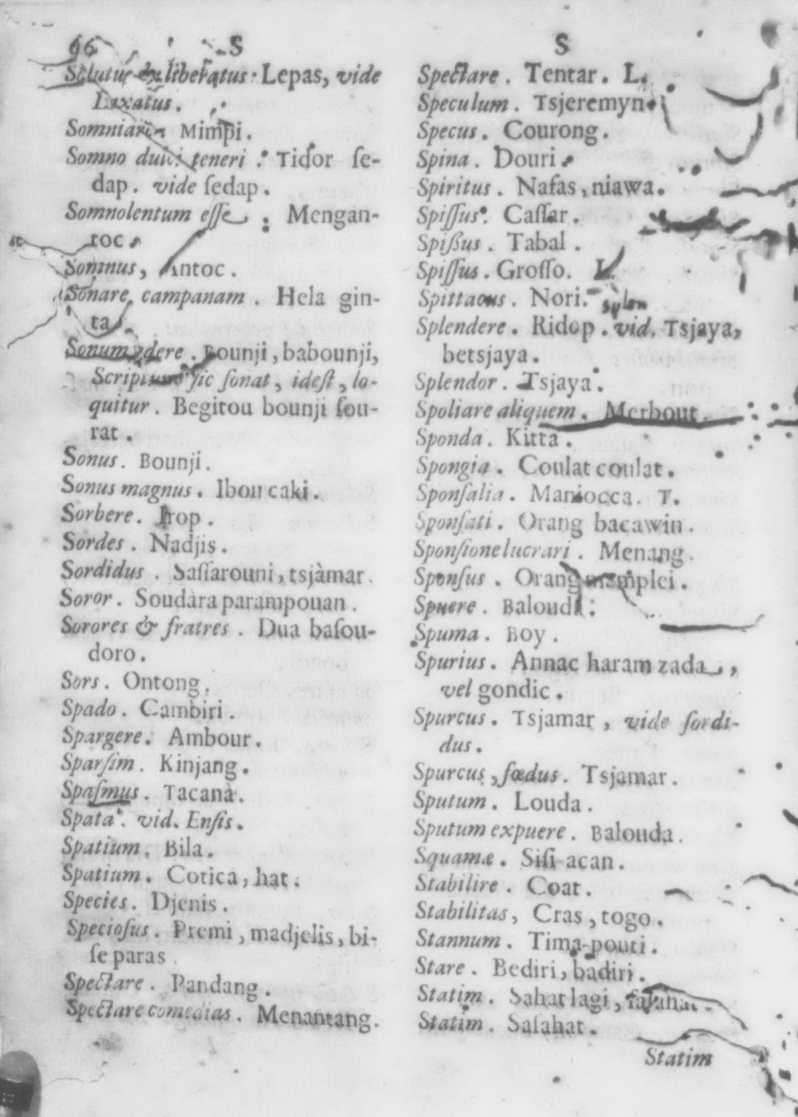 66 S
Solutus & liberatus. Lepas, vide
Laxatus.
Somniari. Mimpi.
Somno dulci teneri. Tidor ſe-
dap. vide ſedap.
Somnolentum eſſe. Mengan-
toc.
Somnus, Antoc.
Sonare campanam. Hela gin-
ta.
Sonum edere. Bounji, babounji,
Scriptum ſic ſonat, ideſt, lo-
quitur. Begitou bounji ſou-
rat.
Sonus. Bounji.
Sonus magnus. Ibou caki.
Sorbere. Irop.
Sordes. Nadjis.
Sordidus. Saſſarouni, tsjàmar.
Soror. Soudàra parampouan.
Sorores & fratres. Dua baſou-
doro.
Sors. Ontong.
Spado. Cambiri.
Spargere. Ambour.
Sparſim. Kinjang.
Spaſmus. Tacanà.
Spata. vid. Enſis.
Spatium. Bila.
Spatium. Cotica, hat.
Species. Djenis.
Specioſus. Premi, madjelis, bi-
ſe paras
Spectare. Pandang.
Spectare comedias. Menantang.
S
Spectare. Tentar. L.
Speculum. Tsjeremyn.
Specus. Courong.
Spina. Douri.
Spiritus. Nafas, niawa.
Spiſſus. Caſſar.
Spißus. Tabal.
Spiſſus. Groſſo. L.
Spittacus. Nori.
Splendere. Ridop. vid. Tsjaya,
betsjaya.
Splendor. Tsjaya.
Spoliare aliquem. Merbout.
Sponda. Kitta.
Spongia. Coulat coulat.
Sponſalia. Maniocca. T.
Sponſati. Orang bacawin.
Sponſione lucrari. Menang.
Sponſus. Orang mamplei.
Spuere. Baloudi.
Spuma. Boy.
Spurius. Annac haram zada,
vel gondic.
Spurcus. Tsjamar, vide ſordi-
dus.
Spurcus, fœdus. Tsjamar.
Sputum. Louda.
Sputum expuere. Balouda.
Squamæ. Siſi-acan.
Stabilire. Coat.
Stabilitas, Cras, togo.
Stannum. Tima-pouti.
Stare. Bediri, badiri.
Statim. Sahat lagi,
Statim. Saſahat.
Statim